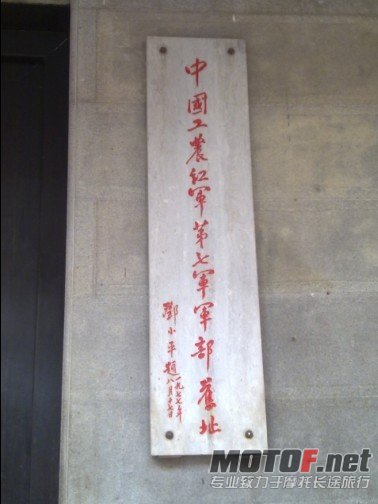 中國工農红軍第七軍軍部舊址
鄧小平題
一九七七年
八月十七日
MOTOF.net
专业致力于摩托长途旅行